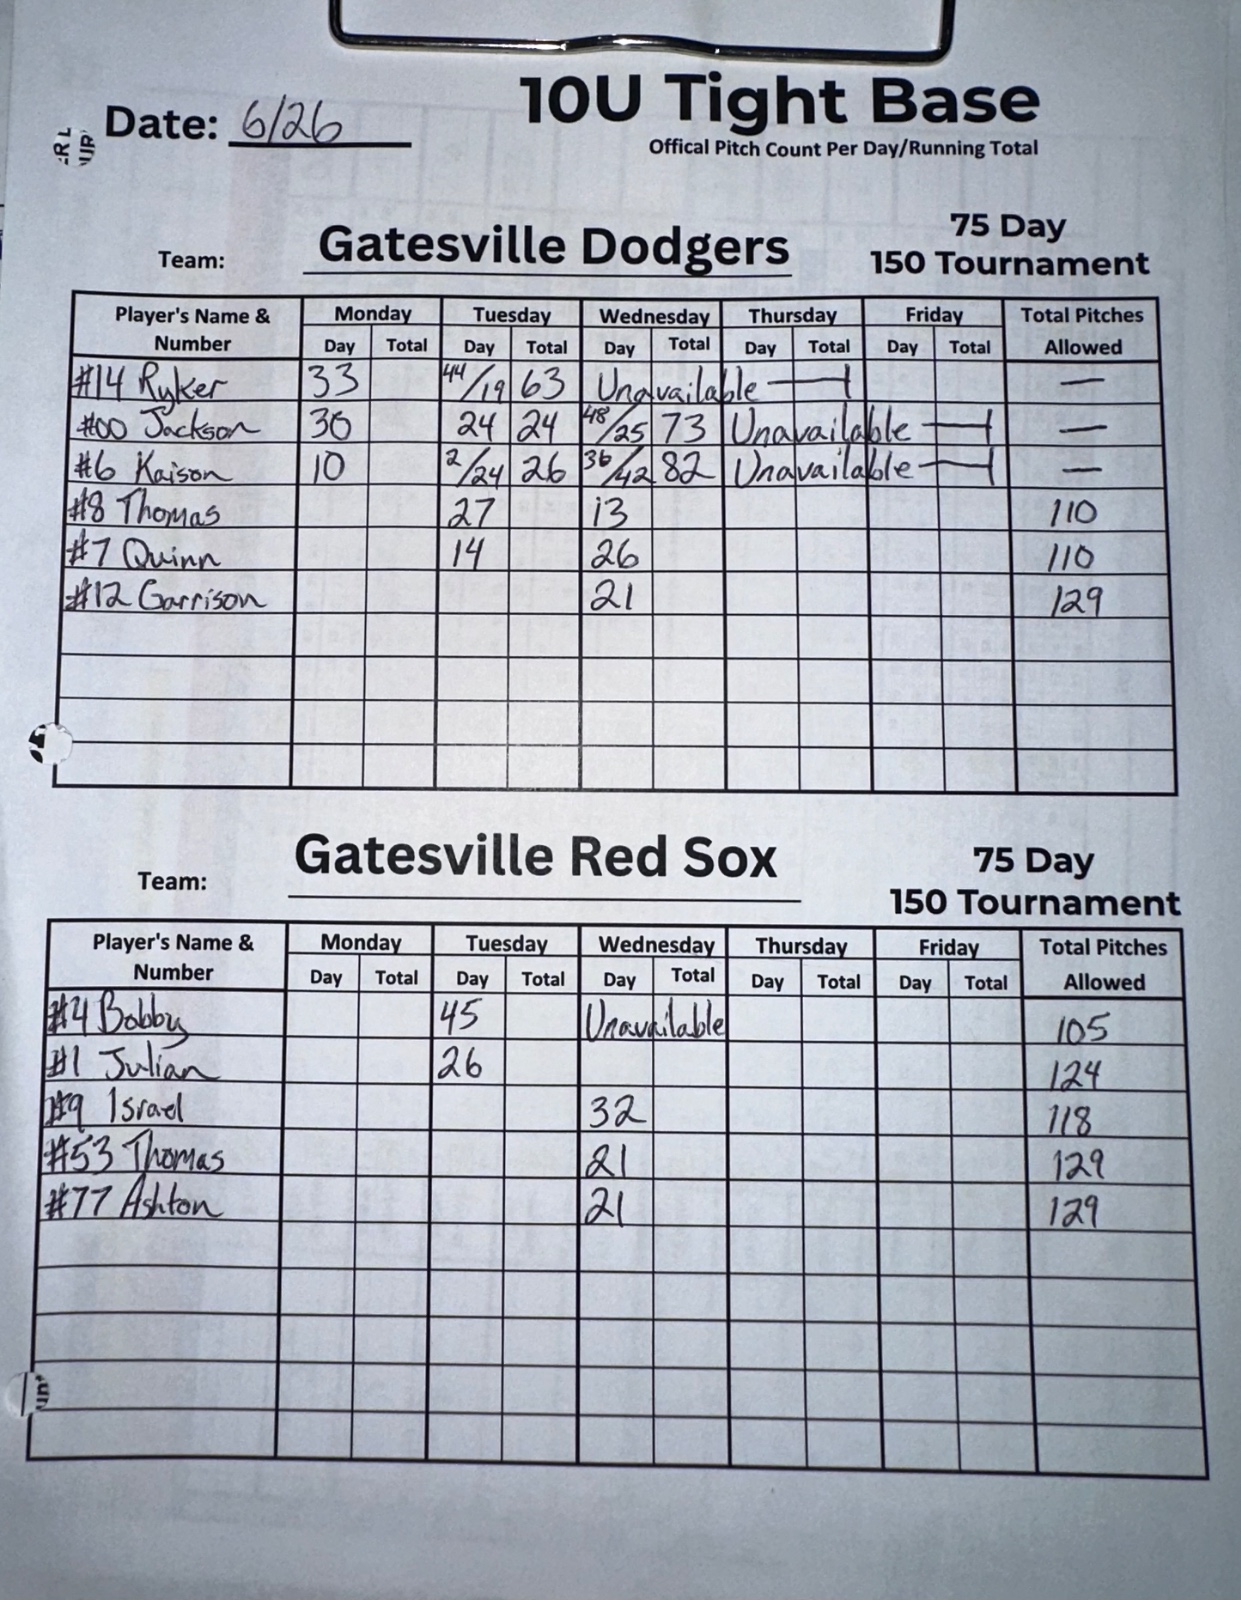 Date: 6/26
10U Tight Base
Offical Pitch Count Per Day/Running Total
75 Day
150 Tournament
Team: Gatesville Dodgers
Player's Name & Number Monday Tuesday Wednesday Thursday Friday Total Pitches Allowed
Day Total Day Total Day Total Day Total Day Total
#14 Ryker 33 44/19 63 Unavailable —
#00 Jackson 30 24 24 48/25 73 Unavailable —
#6 Kaison 10 2/24 26 36/42 82 Unavailable —
#8 Thomas 27 13 110
#7 Quinn 14 26 110
#12 Garrison 21 129
75 Day
150 Tournament
Team: Gatesville Red Sox
Player's Name & Number Monday Tuesday Wednesday Thursday Friday Total Pitches Allowed
Day Total Day Total Day Total Day Total Day Total
#4 Bobby 45 Unavailable 105
#1 Julian 26 124
#9 Israel 32 118
#53 Thomas 21 129
#77 Ashton 21 129